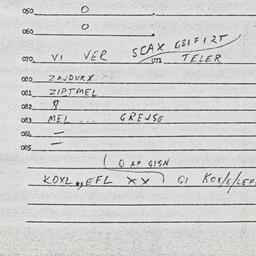 050. O
060. O
070. VI VER SCAX GSIFIZT
071. TELER
080. ZNJDURX
081. ZIPTMEL
082. 8
083. MEL ... GREJSE
084. —
085. —
Q AP GISN
KOXL, EFL XX GI KOX/E/LEF